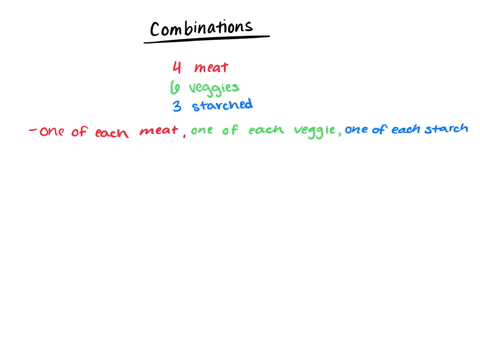 Combinations
4 meat
6 veggies
3 starched
- one of each meat, one of each veggie, one of each starch